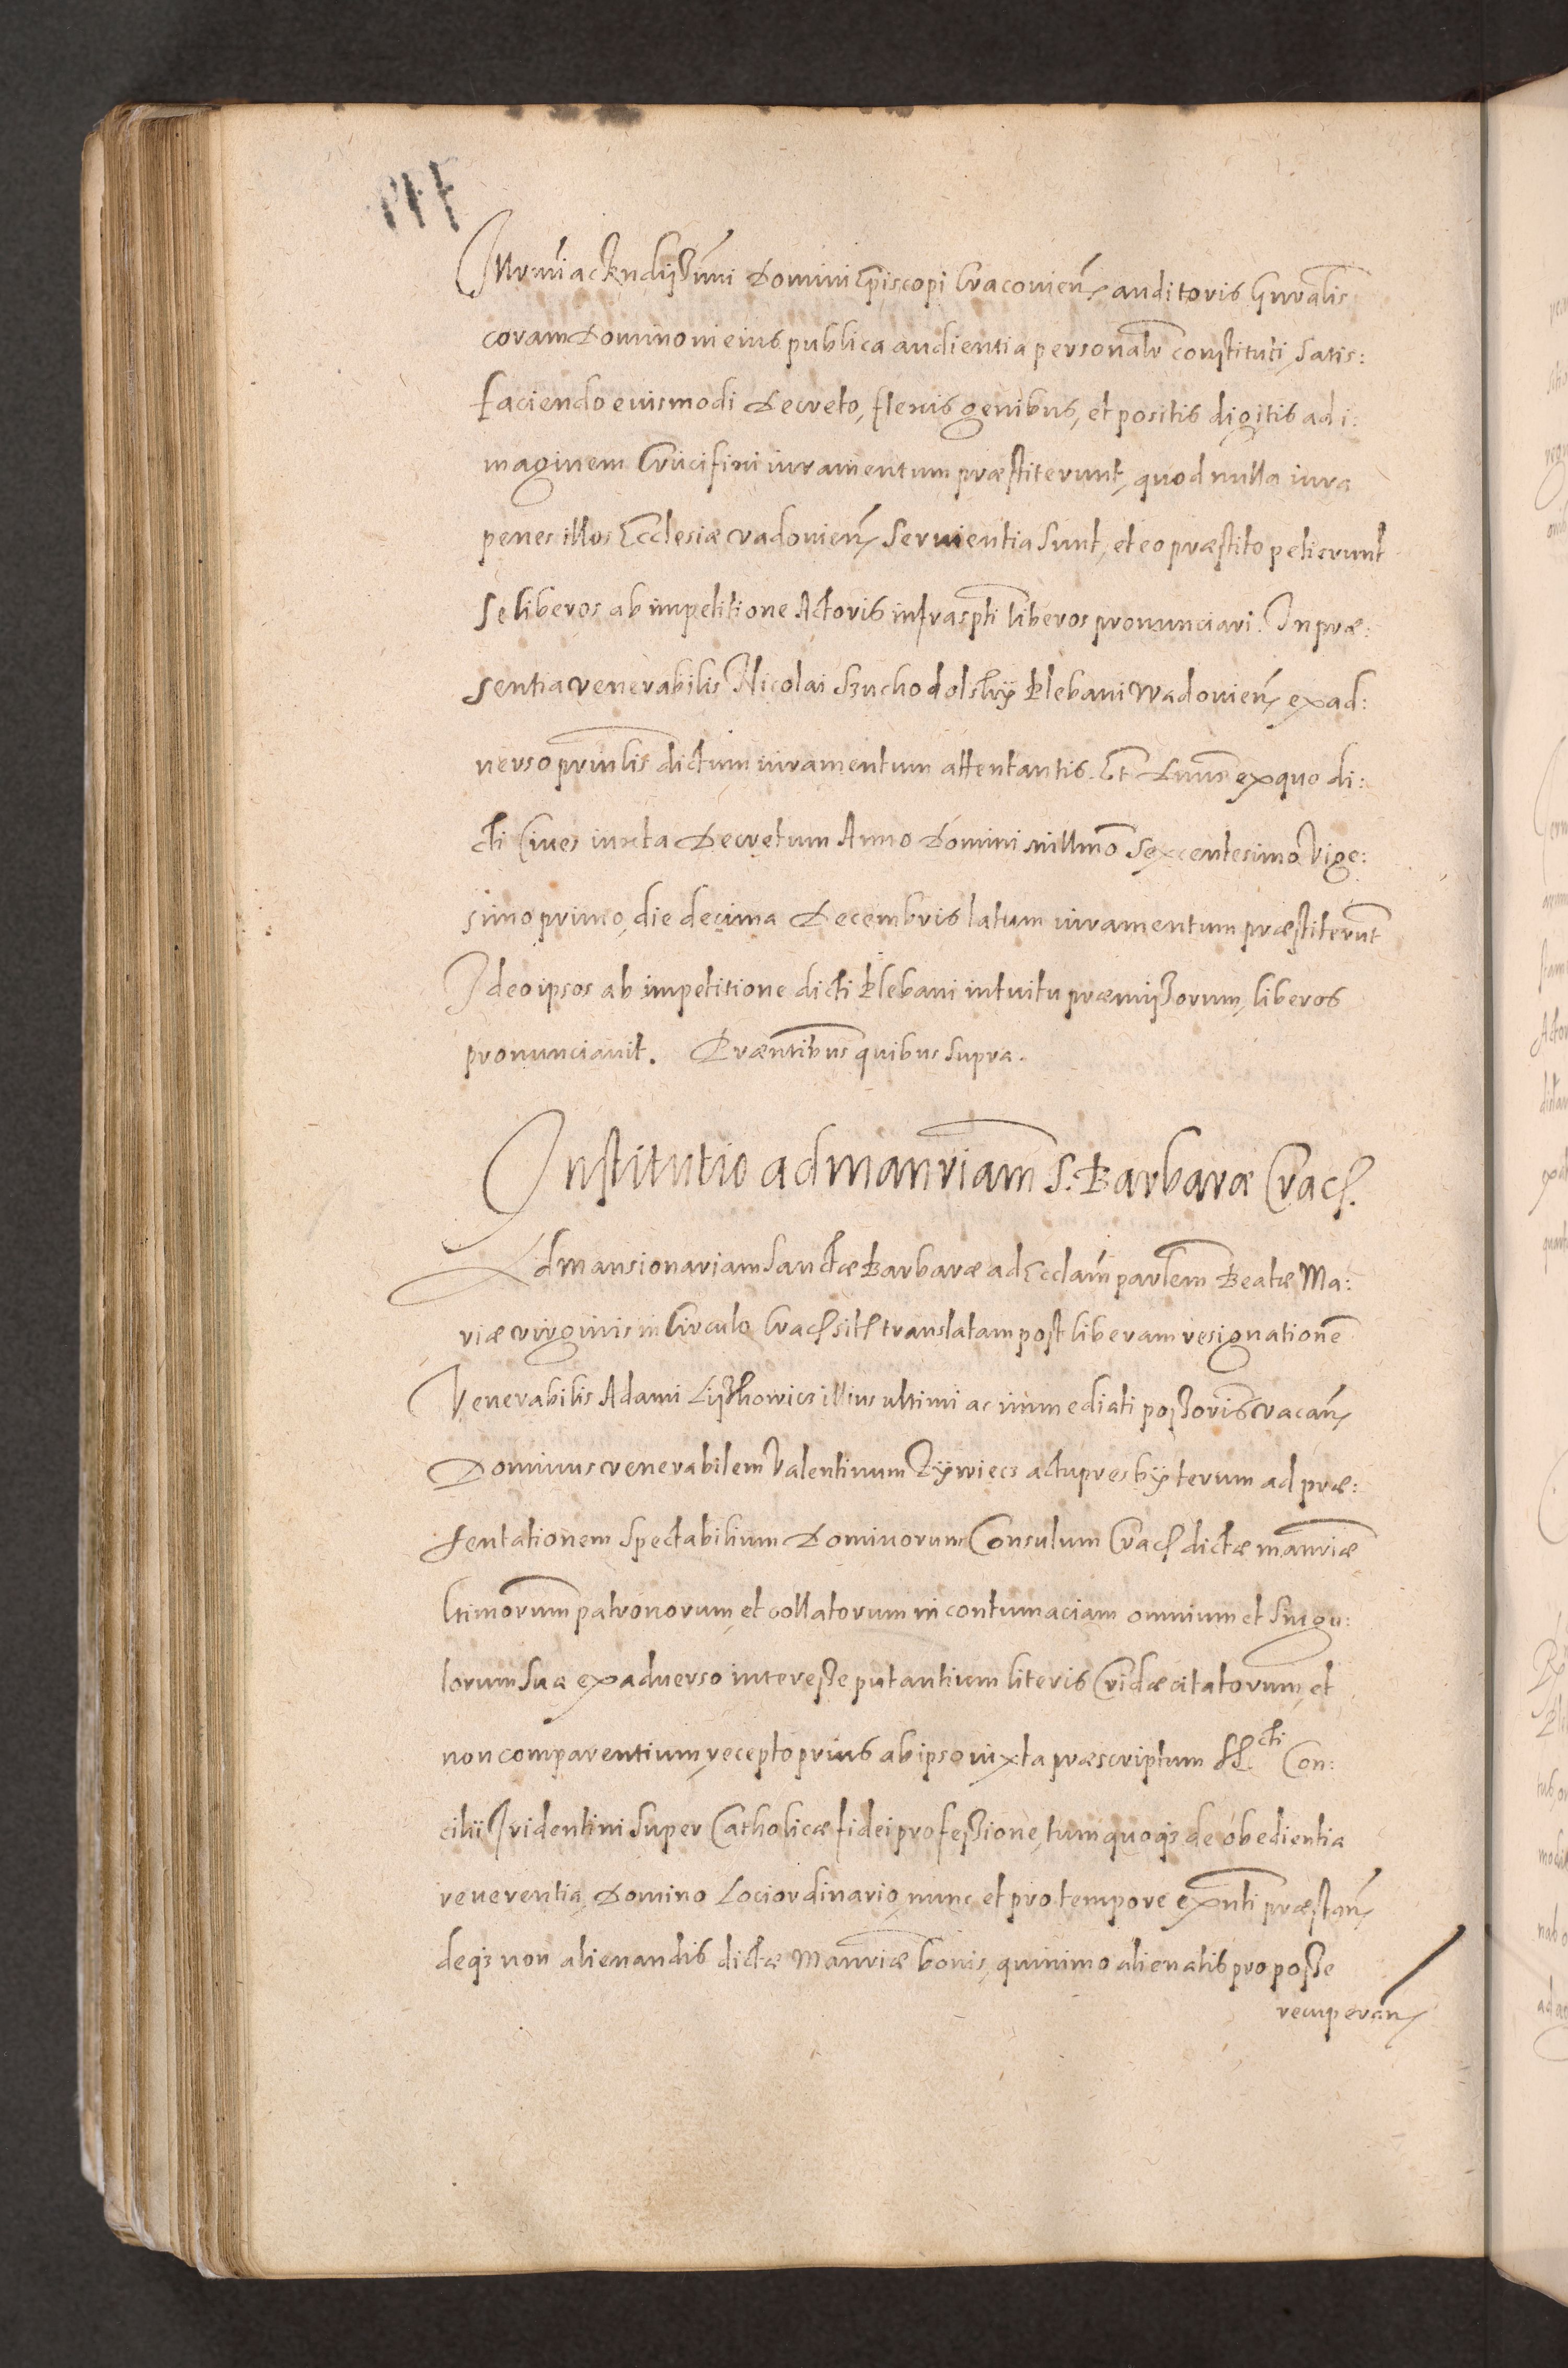 Illrmi ac Rndissimi Domini Episcopi Cracovien auditoris Gnralis
coram Domino in eius publica audientia personalr constituti, satis:
faciendo eiusmodi Decreto, flexis genibus, et positis digitis ad i:
maginem Crucifixi iuramentum præstiterunt, quod nulla iura
penes illos Ecclesiæ vadovien servientia sunt, et eo præstito petierunt
se liberos ab impetitione Actoris infraspti liberos pronunciari. In præ:
sentia venerabilis Nicolai Szuchodolskÿ Plebani Wadovien ex ad:
uerso prnlis dictum iuramentum attentantis. Et Dnus ex quo di:
cti Ciues iuxta Decretum Anno Domini millmo Sexcentesimo Vige:
simo primo, die decima Decembris latum iuramentum præstiterut
Ideo ipsos ab impetitione dicti Plebani intuitu præmissorum, liberos
pronunciauit. Præntibus quibus supra.
Institutio ad manriam S. Barbaræ Crac.
Ad Mansionariam Sanctæ Barbaræ ad Ecclam parlem Beatæ Ma:
riæ virginis in Circulo Crac sit translatam post liberam resignatione
Venerabilis Adami illius ultimi ac immediati possoris vacan
Dominus venerabilem Valentinum Zÿwiecs actu presbÿterum ad præ:
sentationem Spectabilium Dominorum Consulum Crac dictæ manriæ
ltimorum patronorum, et collatorum in contumaciam omnium et singu:
lorum sua ex aduerso interesse putantium literis Cridæ citatorum, et
non comparentium, recepto prius ab ipso iuxta præscriptum Scti Con:
cilii Tridentini super Catholicæ fidei professione, tum quoqs de obedientia
reuerentia, Domino Loci ordinario, nunc et pro tempore exnti præstan
deqs non alienandis dictæ Manriæ bonis, quinimo alienatis pro posse
recuperan